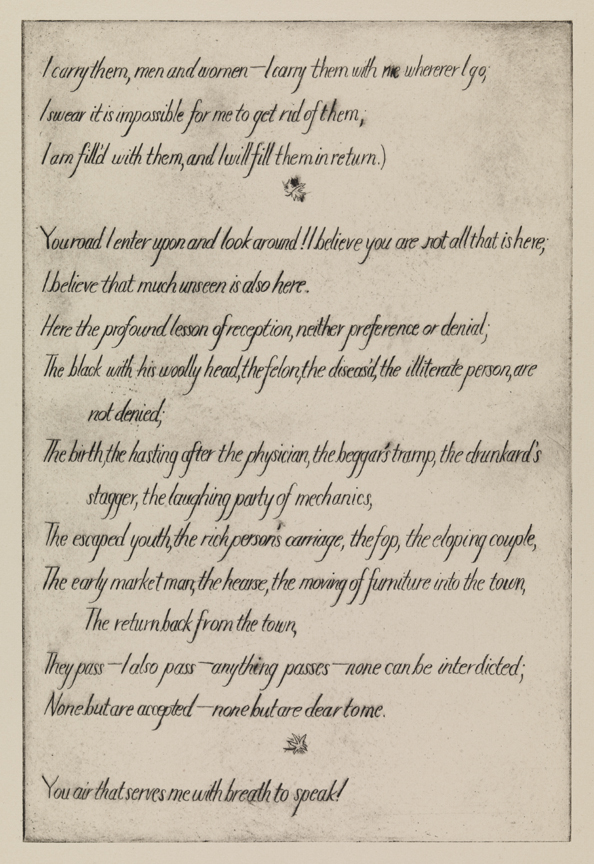 I carry them, men and women—I carry them with me wherever I go;
I swear it is impossible for me to get rid of them;
I am fill'd with them, and I will fill them in return.)
You road I enter upon and look around! I believe you are not all that is here;
I believe that much unseen is also here.
Here the profound lesson of reception, neither preference or denial;
The black with his woolly head, the felon, the diseas'd, the illiterate person, are
not denied;
The birth, the hasting after the physician, the beggar's tramp, the drunkard's
stagger, the laughing party of mechanics,
The escaped youth, the rich person's carriage, the fop, the eloping couple,
The early market man, the hearse, the moving of furniture into the town,
The return back from the town,
They pass—I also pass—anything passes—none can be interdicted;
None but are accepted—none but are dear to me.
You air that serves me with breath to speak!